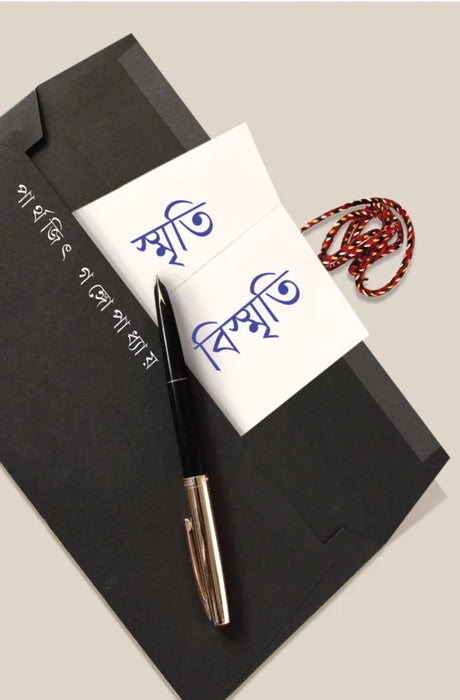 স্মৃতি
বিস্মৃতি
পার্থজিৎ গঙ্গোপাধ্যায়